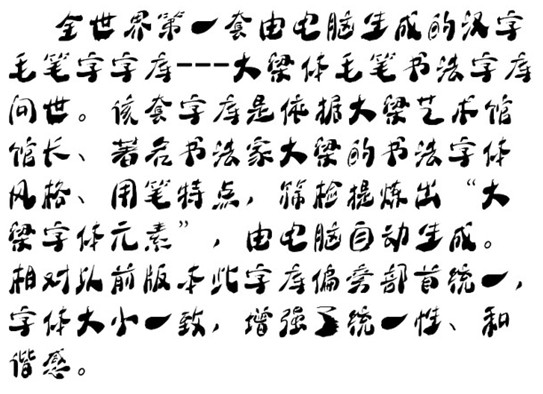 全世界第一套由电脑生成的汉字
毛笔字字库---大梁体毛笔书法字库
问世。该套字库是依据大梁艺术馆
馆长、著名书法家大梁的书法字体
风格、用笔特点，筛检提炼出“大
梁字体元素”，由电脑自动生成。
相对以前版本此字库偏旁部首统一，
字体大小一致，增强了统一性、和
谐感。